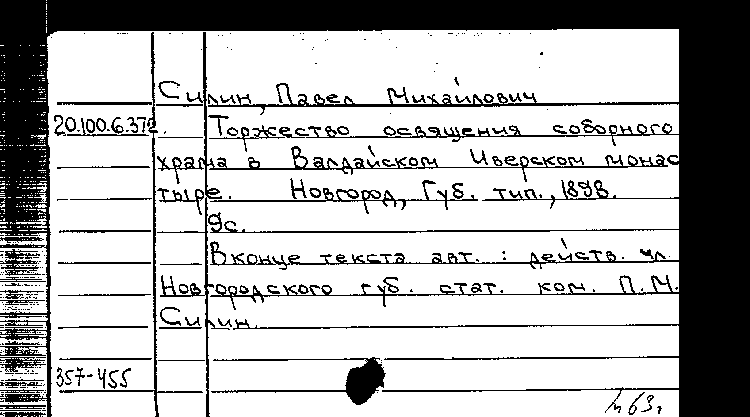 Силин, Павел Михайлович
20.100.6.372. Торжество освящения соборного
храма в Валдайском Иверском монас
тыре. Новгород, Губ. тип., 1898.
9с.
В конце текста авт. : действ. чл.
Новгородского губ. стат. ком. П.М.
Силин.
357-455
63г